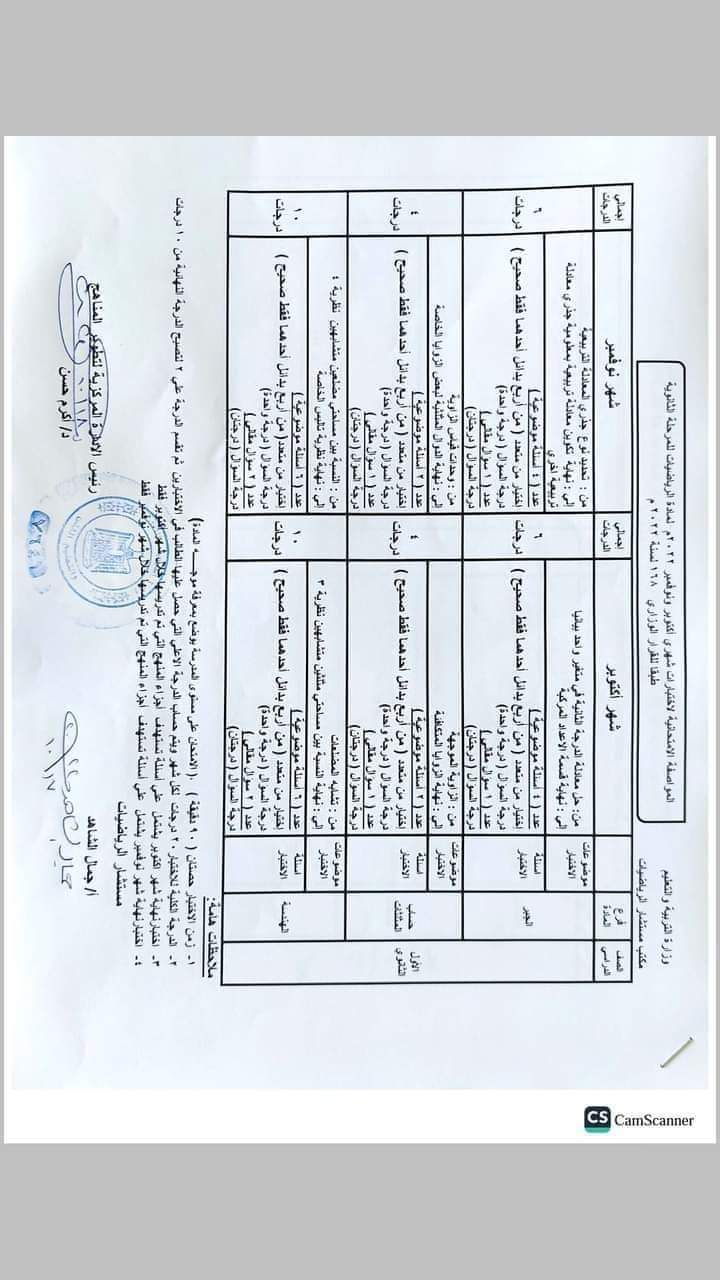 وزارة التربية والتعليم
مكتب مستشار الرياضيات
المواصفة الامتحانية لاختبارات شهري أكتوبر ونوفمبر ٢٠٢٢م لمادة الرياضيات للمرحلة الثانوية
طبقا للقرار الوزاري ١٦٨ لسنة ٢٠٢٢ م
الصف الدراسي
فرع المادة
شهر أكتوبر
إجمالي الدرجات
شهر نوفمبر
إجمالي الدرجات
الأول الثانوي
الجبر
موضوعات الاختبار
من : حل معادلة الدرجة الثانية في متغير واحد بيانيا
إلى : نهاية قسمة الأعداد المركبة
٦ درجات
من : تحديد نوع جذري المعادلة التربيعية
إلى : نهاية تكوين معادلة تربيعية بمعلومية جذري معادلة تربيعية أخري
٦ درجات
اسئلة الاختبار
عدد ( ٤ أسئلة موضوعية )
إختيار من متعدد ( من أربع بدائل أحدهما فقط صحيح )
درجة السؤال (درجة واحدة)
عدد ( ١ سؤال مقالى )
درجة السؤال (درجتان)
عدد ( ٤ أسئلة موضوعية )
إختيار من متعدد ( من أربع بدائل أحدهما فقط صحيح )
درجة السؤال (درجة واحدة)
عدد ( ١ سؤال مقالى )
درجة السؤال (درجتان)
حساب المثلثات
موضوعات الاختبار
من : الزاوية الموجهة
إلى : نهاية الزوايا المتكافئة
٤ درجات
من : وحدات قياس الزاوية
إلى : نهاية الدوال المثلثية لبعض الزوايا الخاصة
٤ درجات
اسئلة الاختبار
عدد ( ٢ أسئلة موضوعية )
إختيار من متعدد ( من أربع بدائل أحدهما فقط صحيح )
درجة السؤال (درجة واحدة)
عدد ( ١ سؤال مقالى )
درجة السؤال (درجتان)
عدد ( ٢ أسئلة موضوعية )
إختيار من متعدد ( من أربع بدائل أحدهما فقط صحيح )
درجة السؤال (درجة واحدة)
عدد ( ١ سؤال مقالى )
درجة السؤال (درجتان)
الهندسة
موضوعات الاختبار
من : تشابه المضلعات
إلى : نهاية النسبة بين مساحتي مثلثين متشابهين نظرية ٣
١٠ درجات
من : النسبة بين مساحتي مضلعين متشابهين نظرية ٤
إلى : نهاية نظرية تاليس الخاصة
١٠ درجات
اسئلة الاختبار
عدد ( ٦ أسئلة موضوعية )
إختيار من متعدد ( من أربع بدائل أحدهما فقط صحيح )
درجة السؤال (درجة واحدة)
عدد ( ٢ سؤال مقالى )
درجة السؤال (درجتان)
عدد ( ٦ أسئلة موضوعية )
إختيار من متعدد ( من أربع بدائل أحدهما فقط صحيح )
درجة السؤال (درجة واحدة)
عدد ( ٢ سؤال مقالى )
درجة السؤال (درجتان)
ملاحظات هامة:
١- زمن الاختبار حصتان ( ٩٠ دقيقة ) . (الامتحان على مستوى المدرسة يوضع بمعرفة موجه المادة)
٢- الدرجة الكلية للاختبار ٢٠ درجات لكل شهر ويتم حساب الدرجة الاعلى التى حصل عليها الطالب فى الاختبارين ثم تقسم الدرجة على ٢ لتصبح الدرجة النهائية من ١٠ درجات
٣- اختبار نهاية شهر أكتوبر يشتمل على أسئلة تستهدف أجزاء المنهج التى تم تدريسها خلال شهر أكتوبر فقط
٤- اختبار نهاية شهر نوفمبر يشتمل على أسئلة تستهدف أجزاء المنهج التى تم تدريسها خلال شهر نوفمبر فقط
مستشار الرياضيات
أ/ جمال الشاهد
١٠/١٧
رئيس الادارة المركزية لتطوير المناهج
د/ أكرم حسن
CS CamScanner